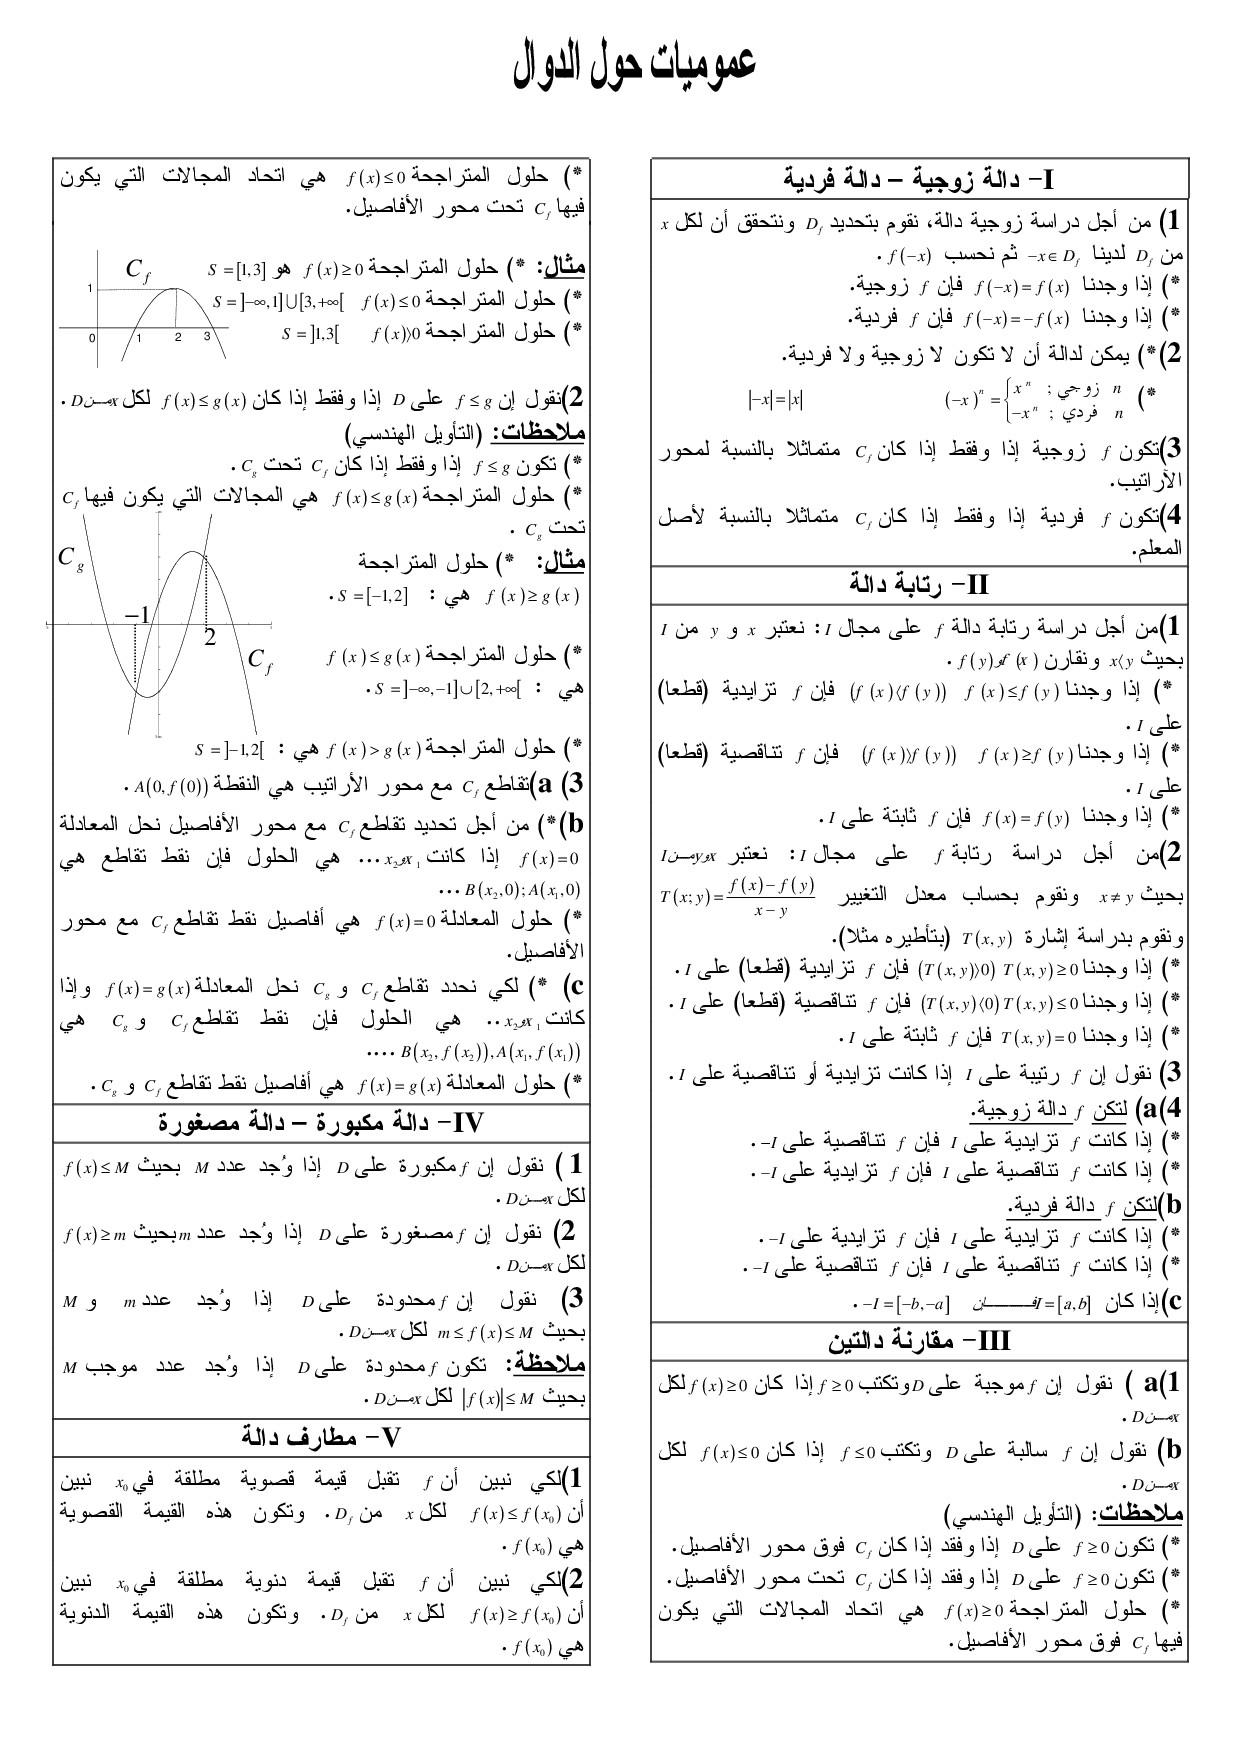 عموميات حول الدوال
I- دالة زوجية – دالة فردية
1) من أجل دراسة زوجية دالة، نقوم بتحديد D_f ونتحقق أن لكل x
من D_f لدينا -x∈D_f ثم نحسب f(-x) .
*) إذا وجدنا f(-x)=f(x) فإن f زوجية.
*) إذا وجدنا f(-x)=-f(x) فإن f فردية.
2)*) يمكن لدالة أن لا تكون لا زوجية ولا فردية.
*) (-x)^n = { x^n ; زوجي n
-x^n ; فردي n |-x|=|x|
3)تكون f زوجية إذا وفقط إذا كان C_f متماثلا بالنسبة لمحور
الآراتيب.
4)تكون f فردية إذا وفقط إذا كان C_f متماثلا بالنسبة لأصل
المعلم.
II- رتابة دالة
1)من أجل دراسة رتابة دالة f على مجال I: نعتبر x و y من I
بحيث x⟨y ونقارن f(x) و f(y) .
*) إذا وجدنا f(x)≤f(y) (f(x)⟨f(y)) فإن f تزايدية (قطعا)
على I .
*) إذا وجدنا f(x)≥f(y) (f(x)⟩f(y)) فإن f تناقصية (قطعا)
على I .
*) إذا وجدنا f(x)=f(y) فإن f ثابتة على I .
2)من أجل دراسة رتابة f على مجال I: نعتبر x و y من I
بحيث x≠y ونقوم بحساب معدل التغيير T(x;y)=(f(x)-f(y))/(x-y)
ونقوم بدراسة إشارة T(x,y) (بتأطيره مثلا).
*) إذا وجدنا T(x,y)≥0 (T(x,y)⟩0) فإن f تزايدية (قطعا) على I .
*) إذا وجدنا T(x,y)≤0 (T(x,y)⟨0) فإن f تناقصية (قطعا) على I .
*) إذا وجدنا T(x,y)=0 فإن f ثابتة على I .
3) نقول إن f رتيبة على I إذا كانت تزايدية أو تناقصية على I .
4)a) لتكن f دالة زوجية.
*) إذا كانت f تزايدية على I فإن f تناقصية على -I .
*) إذا كانت f تناقصية على I فإن f تزايدية على -I .
b)لتكن f دالة فردية.
*) إذا كانت f تزايدية على I فإن f تزايدية على -I .
*) إذا كانت f تناقصية على I فإن f تناقصية على -I .
c)إذا كان I=[a,b] فإن -I=[-b,-a] .
III- مقارنة دالتين
1)a ) نقول إن f موجبة على D وتكتب f≥0 إذا كان f(x)≥0 لكل
x من D .
b) نقول إن f سالبة على D وتكتب f≤0 إذا كان f(x)≤0 لكل
x من D .
ملاحظات: (التأويل الهندسي)
*) تكون f≥0 على D إذا وفقد إذا كان C_f فوق محور الأفاصيل.
*) تكون f≥0 على D إذا وفقد إذا كان C_f تحت محور الأفاصيل.
*) حلول المتراجحة f(x)≥0 هي اتحاد المجالات التي يكون
فيها C_f فوق محور الأفاصيل.
*) حلول المتراجحة f(x)≤0 هي اتحاد المجالات التي يكون
فيها C_f تحت محور الأفاصيل.
مثال: *) حلول المتراجحة f(x)≥0 هو S=[1,3]
*) حلول المتراجحة f(x)≤0 S=]-∞,1]∪[3,+∞[
*) حلول المتراجحة f(x)⟩0 S=]1,3[
C_f
1
0 1 2 3
2)نقول إن f≤g على D إذا وفقط إذا كان f(x)≤g(x) لكل x من D .
ملاحظات: (التأويل الهندسي)
*) تكون f≤g إذا وفقط إذا كان C_f تحت C_g .
*) حلول المتراجحة f(x)≤g(x) هي المجالات التي يكون فيها C_f
تحت C_g .
مثال: *) حلول المتراجحة
f(x)≥g(x) هي : S=[-1,2] .
*) حلول المتراجحة f(x)≤g(x)
هي : S=]-∞,-1]∪[2,+∞[ .
C_g
-1
2
C_f
*) حلول المتراجحة f(x)>g(x) هي : S=]-1,2[
3) a)تقاطع C_f مع محور الأراتيب هي النقطة A(0,f(0)) .
b)*) من أجل تحديد تقاطع C_f مع محور الأفاصيل نحل المعادلة
f(x)=0 إذا كانت x_1 و x_2 ... هي الحلول فإن نقط تقاطع هي
B(x_2,0);A(x_1,0) ...
*) حلول المعادلة f(x)=0 هي أفاصيل نقط تقاطع C_f مع محور
الأفاصيل.
c) *) لكي نحدد تقاطع C_f و C_g نحل المعادلة f(x)=g(x) وإذا
كانت x_1 و x_2 .. هي الحلول فإن نقط تقاطع C_f و C_g هي
B(x_2,f(x_2)),A(x_1,f(x_1)) ....
*) حلول المعادلة f(x)=g(x) هي أفاصيل نقط تقاطع C_f و C_g .
IV- دالة مكبورة – دالة مصغورة
1 ) نقول إن f مكبورة على D إذا وُجد عدد M بحيث f(x)≤M
لكل x من D .
2) نقول إن f مصغورة على D إذا وُجد عدد m بحيث f(x)≥m
لكل x من D .
3) نقول إن f محدودة على D إذا وُجد عدد m و M
بحيث m≤f(x)≤M لكل x من D .
ملاحظة: تكون f محدودة على D إذا وُجد عدد موجب M
بحيث |f(x)|≤M لكل x من D .
V- مطارف دالة
1)لكي نبين أن f تقبل قيمة قصوية مطلقة في x_0 نبين
أن f(x)≤f(x_0) لكل x من D_f . وتكون هذه القيمة القصوية
هي f(x_0) .
2)لكي نبين أن f تقبل قيمة دنوية مطلقة في x_0 نبين
أن f(x)≥f(x_0) لكل x من D_f . وتكون هذه القيمة الدنوية
هي f(x_0) .